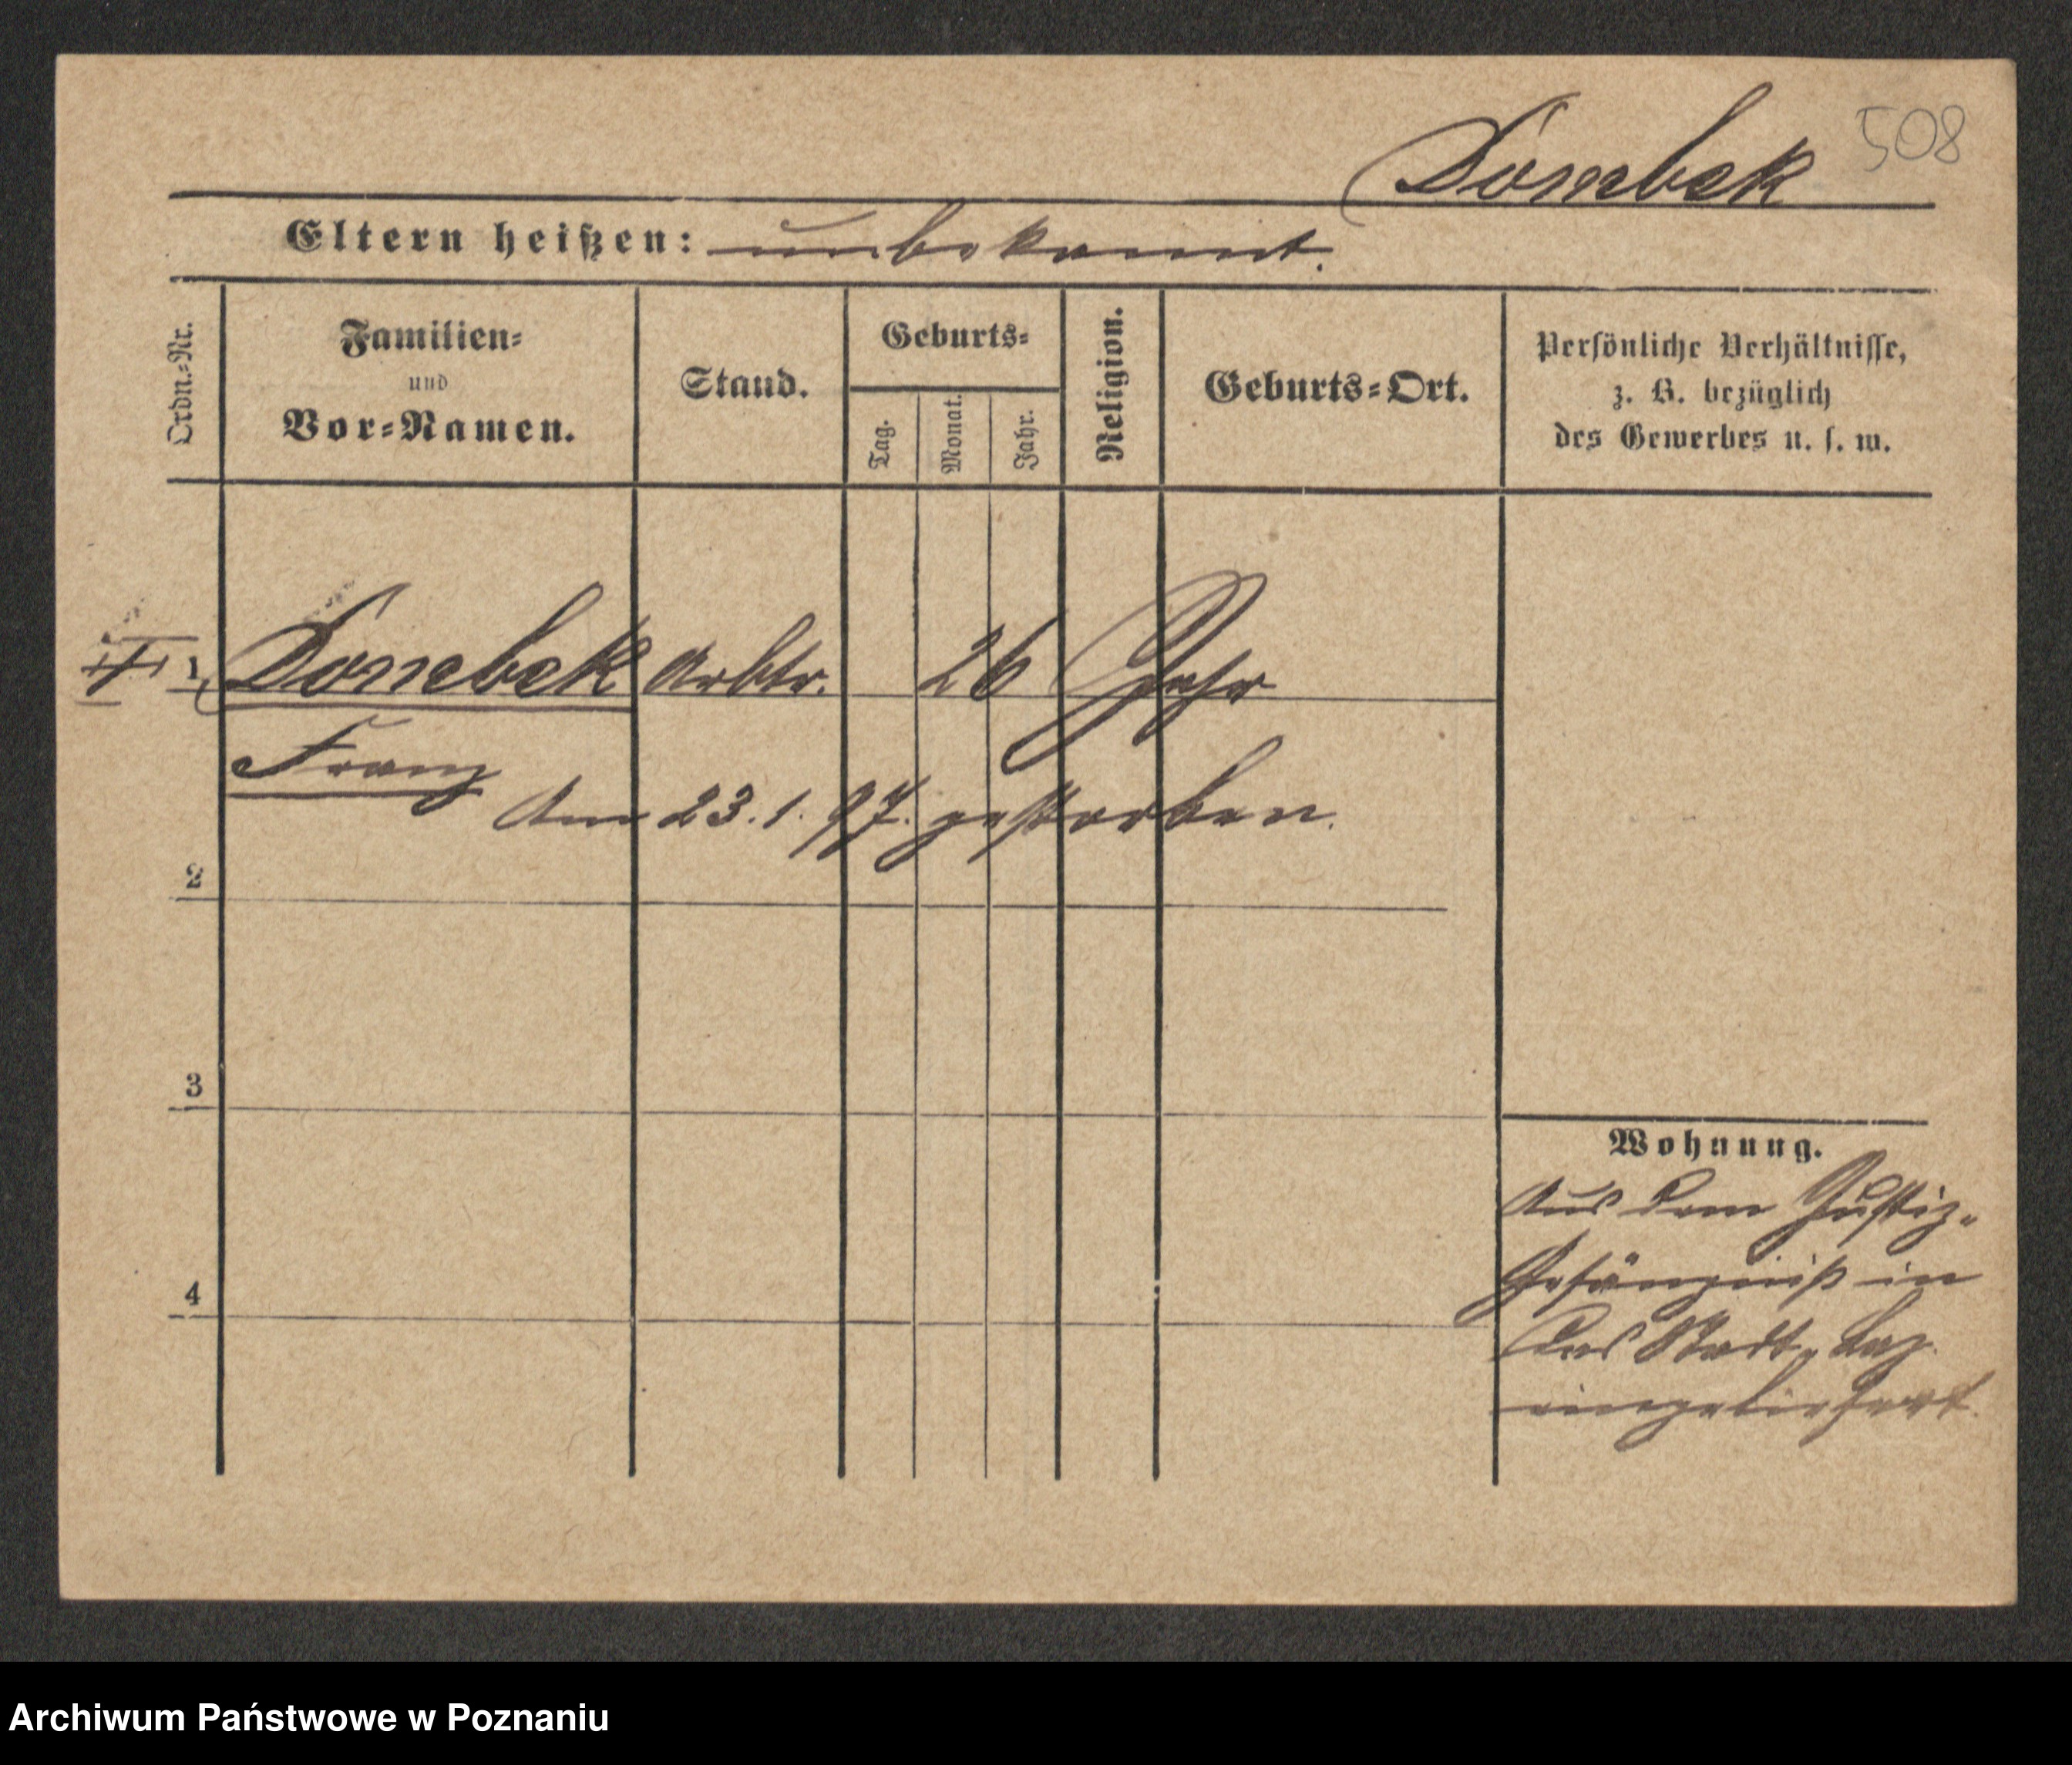 508
Dombek
Eltern heißen: unbekannt.
Ordn.-Nr.
Familien-
und
Vor-Namen.
Stand.
Geburts-
Tag.
Monat.
Jahr.
Religion.
Geburts-Ort.
Persönliche Verhältnisse,
z. B. bezüglich
des Gewerbes u. s. w.
1 Dombek Arbtr. 26 Jahr
Franz
Am 23.1.97. gestorben.
2
3
4
Wohnung.
Aus dem Justiz-
Gefängniß in
das Stadt-Laz.
eingeliefert.
Archiwum Państwowe w Poznaniu